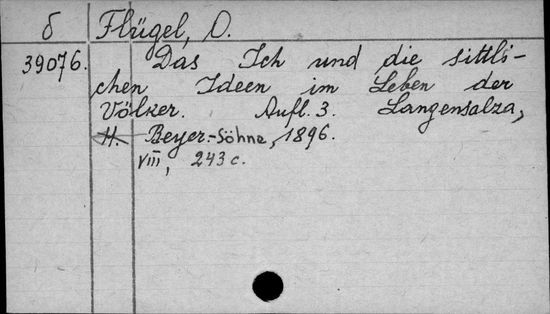 б Flügel, O.
39076. Das Ich und die sittli-
chen Ideen im Leben der
Völker. Aufl. 3. Langensalza,
H. Beyer-Söhne, 1896.
VIII, 243 c.